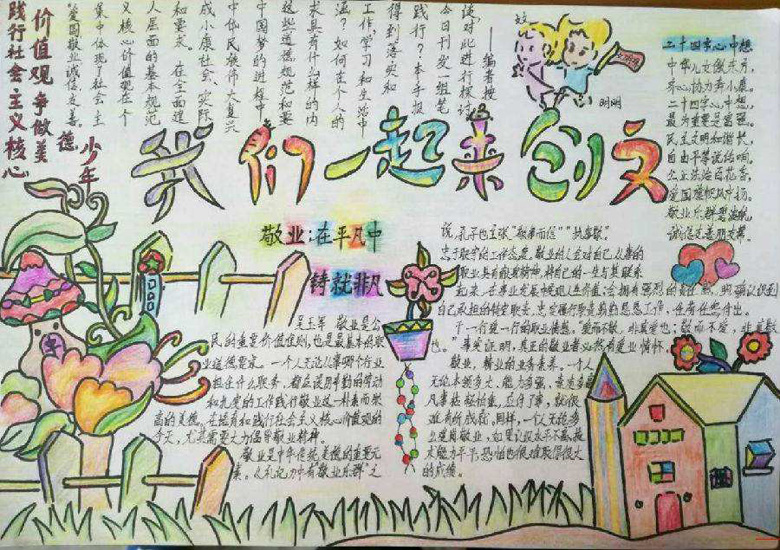 价值观争做美德少年
践行社会主义核心
"爱国敬业诚信友善"
集中体现了社会主
义核心价值观在个
人层面的基本规范
和要求。在全面建
成小康社会、实际
中华民族伟大复兴
中国梦的进程中
这些道德规范和要
求具有什么样的内
涵？如何在个人的
工作，学习和生活中
得到落实和
践行？本手报
今日刊发一组笔
谈对此进行探讨
——编者按
我们一起来创文
文明
二十四字心中想
中华儿女做东方，
齐心协力奔小康。
二十四字心中想，
最为重要是富强。
民主文明和谐长，
自由平等说结响，
公正法治百花香，
敬业乐群
诚信友善朋友帮。
敬业：在平凡中
铸就非凡
吴玉军 敬业是公
民的重要价值准则，也是最基本的职
业道德要求。一个人无论从事哪个行业
担任什么职务，都应该用辛勤的劳动
和高度的工作践行敬业这一朴素而崇
高的美德。在培育和践行社会主义核心价值观的
今天，尤其需要大力倡导敬业精神。
敬业是中华传统美德的重要元
素。《礼记》中有"敬业乐群"之
说，孔子也主张"敬事而信""执事敬"。
忠于职守的工作态度。敬业的人会对自己从事的
职业具有献身精神，将自己的一生与其联系
起来，在事业发展中实现人生价值；会拥有强烈的责任感，明确认识到
自己承担的特定职责，忠实履行职责赋予的工作，任劳任怨付出。
干一行爱一行的职业情感。"爱而不敬，非真爱也；敬而不爱，非真敬
也。"事实证明，真正的敬业者必然有爱业情怀，
敬业，精业的业务素养。一个人
无论本领多大、能力多强，
凡事敷衍拖沓、工作了事，就很
难有所成就。同样，一个人无论多
么道具敬业，如果认识水平不高、技
术能力平平，恐怕也很难取得很大
的成绩。